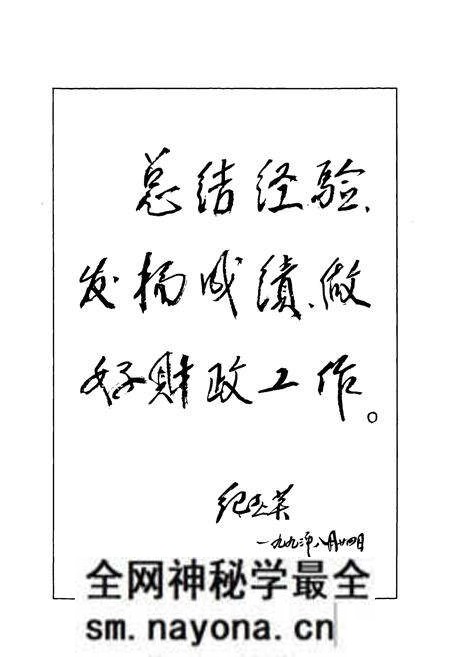 总结经验、
发扬成绩、做
好财政工作。
纪玉英
一九九三年八月廿四日
全网神秘学最全
sm.nayona.cn